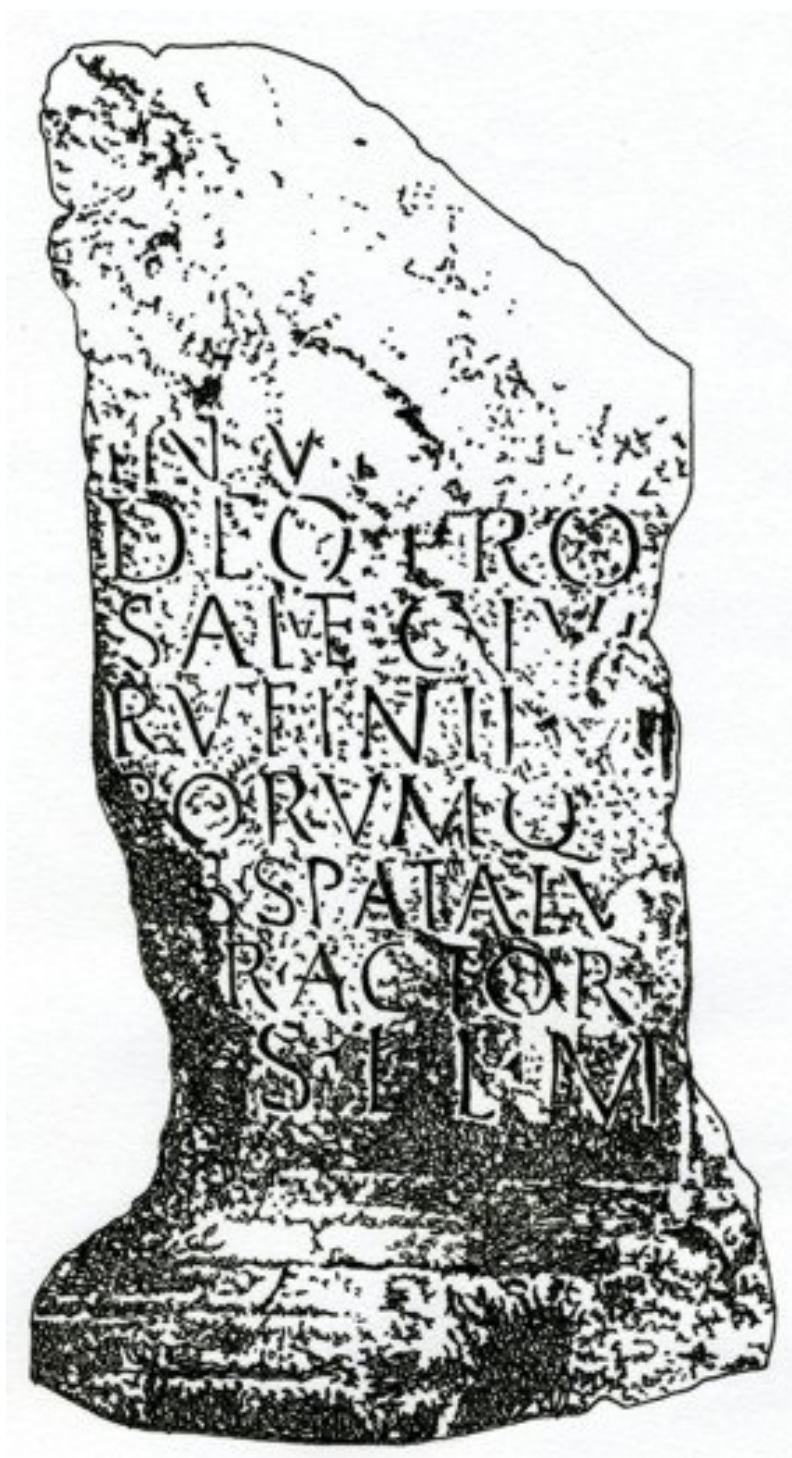 INV
DEO PRO
SALVTE C IV
RVFINI I
ORVMQ
S SPATALV
RACTOR
S L L M